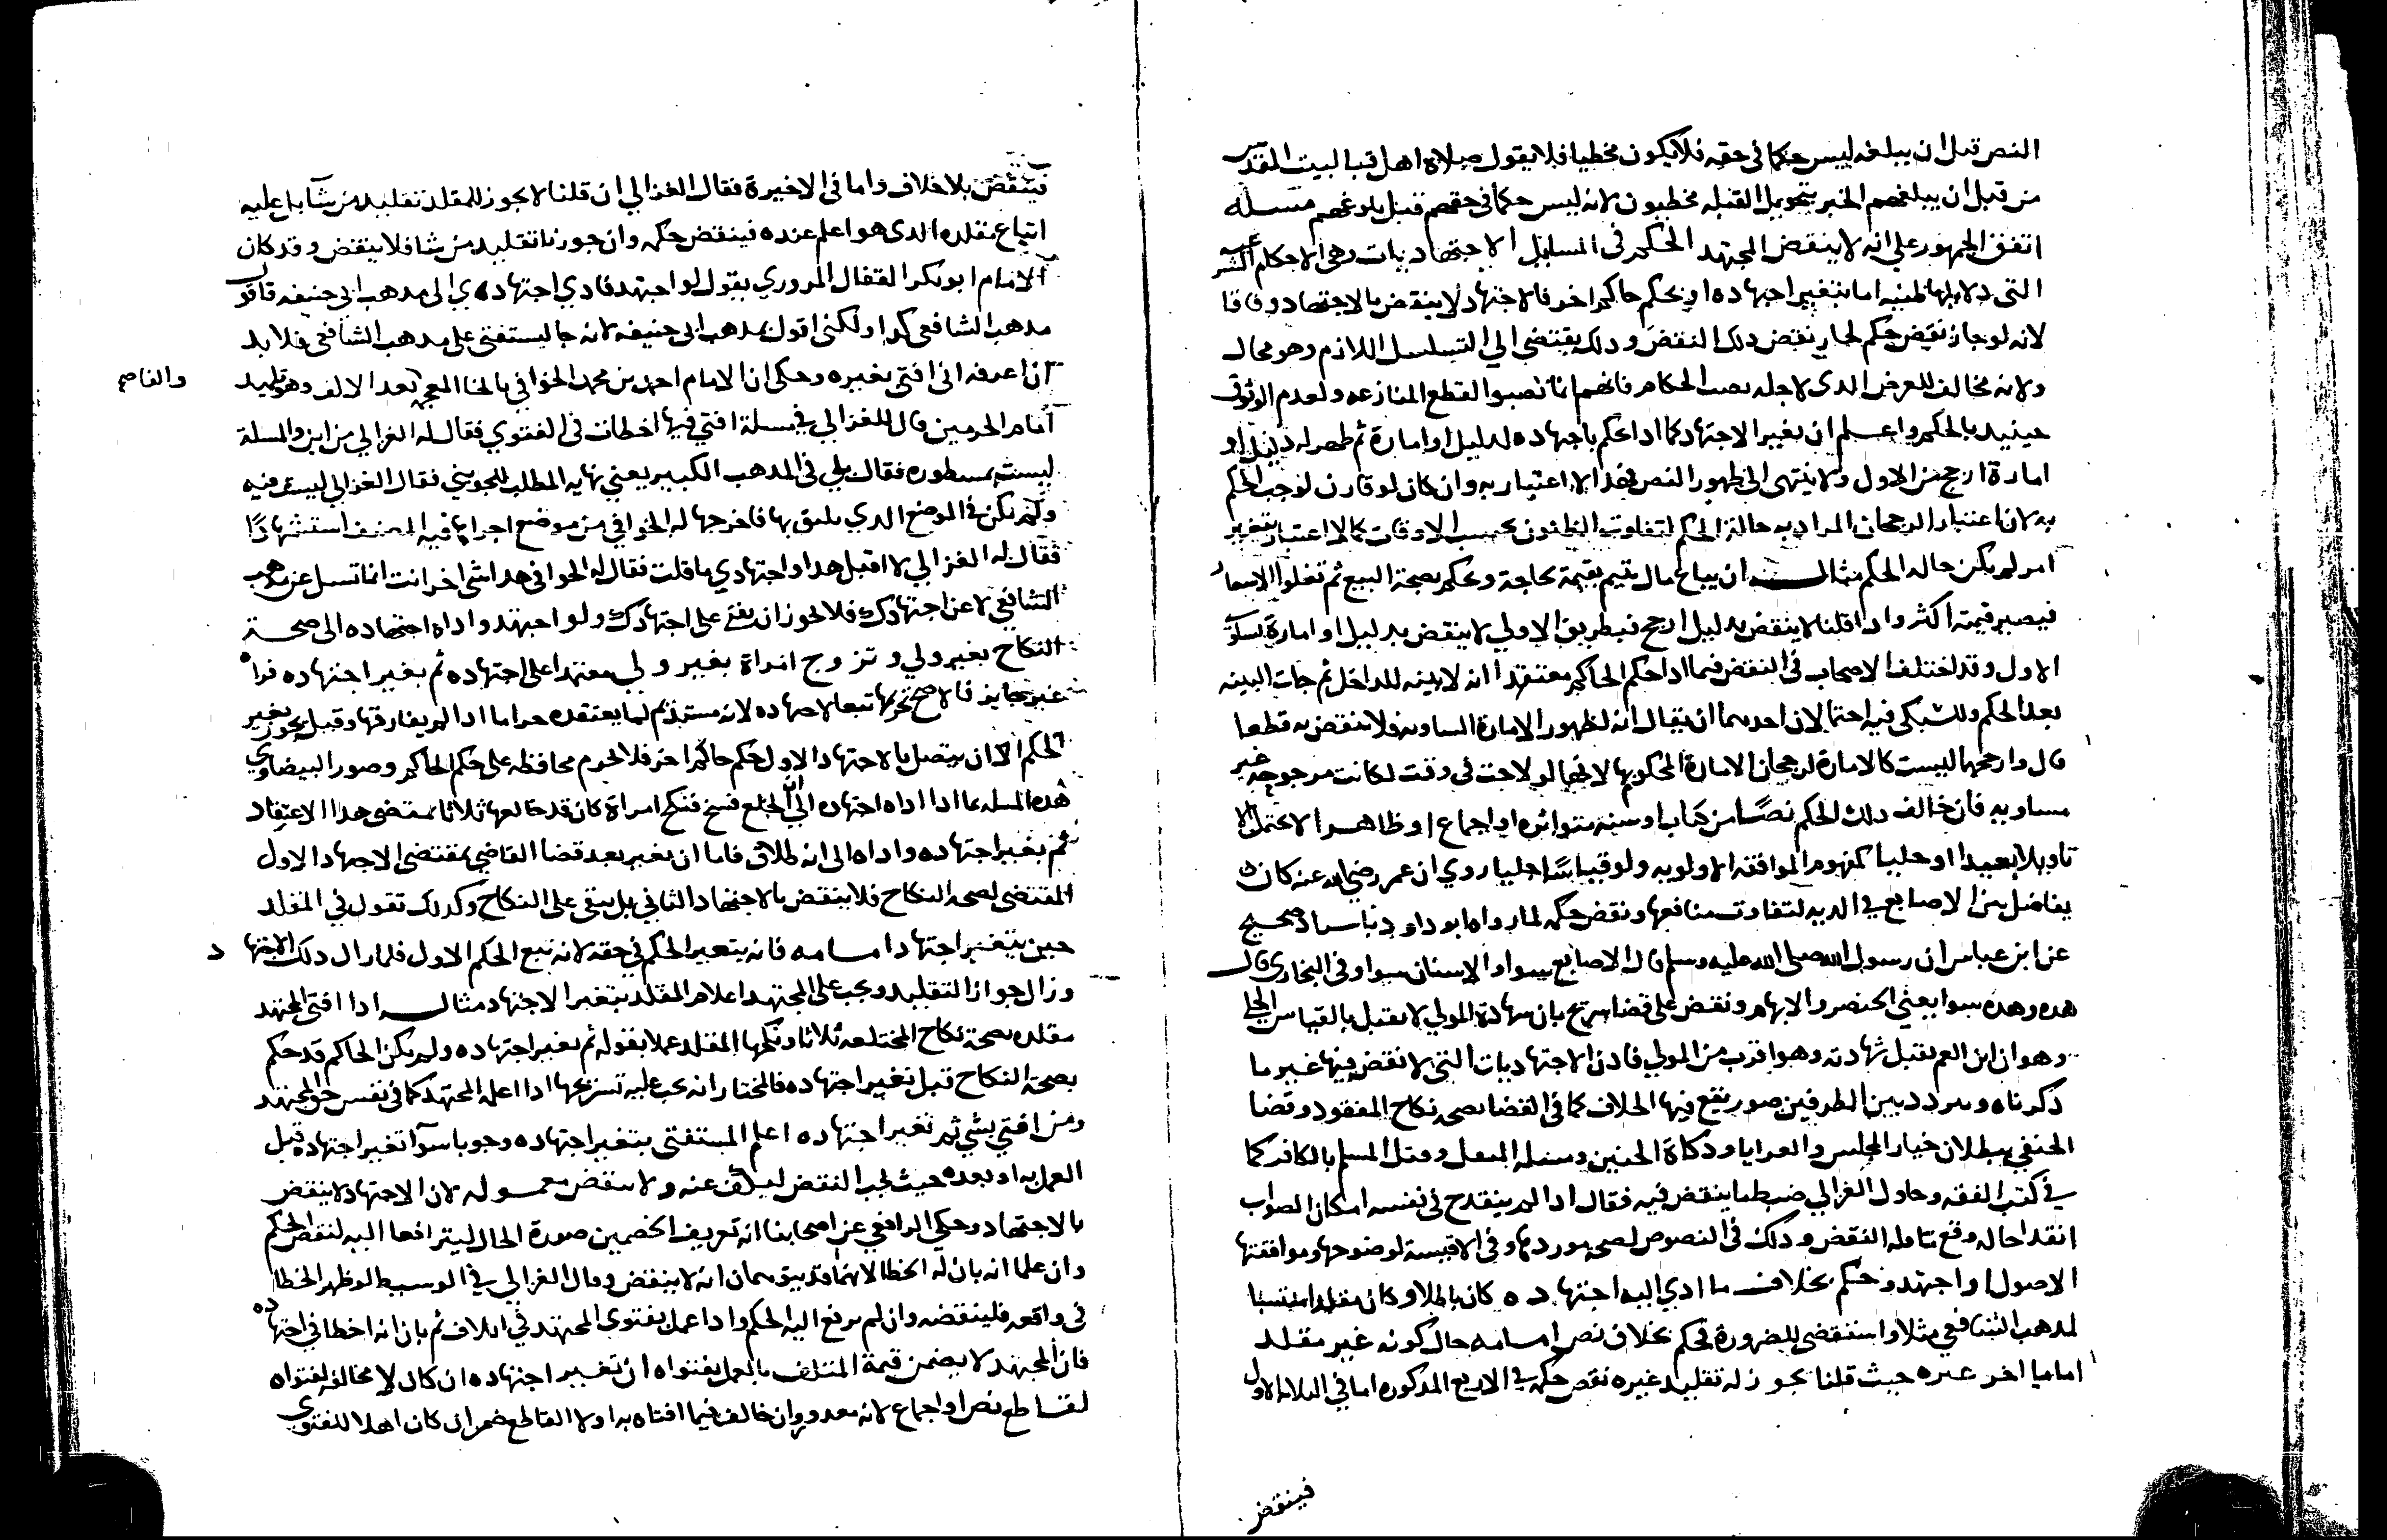 النص قبل ان يبلغه ليس حكما في حقه فلا يكون مخطيا فلا يقول صلاة اهل قبا لبيت المقدس
من قبل ان يبلغهم الخبر بتحويل القبله مخطيون لانه ليس حكما في حقهم قبل بلوغهم مسله
اتفق الجمهور علي انه لا ينقض المجتهد الحكم في المسايل الاجتهاديات وهي الاحكام الشرعيه
التي دلايلها ظنيه اما بتغيير اجتهاده او بحكم حاكم اخر فالاجتهاد لا ينقض بالاجتهاد وفاقا
لانه لو جاز نقض حكم لجاز نقض ذلك النقض وذلك يقتضي الي التسلسل اللازم وهو محال
ولانه مخالف للغرض الدى لاجله نصب الحكام فانهم انما نصبوا لقطع المنازعه ولعدم الوثوق
حينيد بالحكم واعلم ان تغير الاجتهاد كما ادا حكم باجتهاده لدليل او امارة ثم ظهر له دليل او
امارة ارجح من الاول ولا ينتهي الى ظهور النص فهذا لا اعتبار به وان كان لو قارن لوجب الحكم
به لان اعتبار الرجحان المراد به حالة الحكم لتفاوت الظنون بحسب الاوقات كما لا اعتبار بتغير
امر لم يكن حاله الحكم مثاله ان يباع مال يتيم بقيمة لحاجة وحكم بصحة البيع ثم تغلوا الاسعار
فيصير قيمته اكثر وادا قلنا لا ينقض بدليل ارجح فبطريق الاولي لا ينقض بدليل او امارة يساوي
الاول وقد اختلف الاصحاب في النقض فيما ادا حكم الحاكم معتقدا انه لا بينه للداخل ثم جات البينه
بعد الحكم وللسبكي فيه احتمالان احدهما ان يقال انه لظهور الامارة المساويه فلا ينقض به قطعا
قال وارجحهما ليست كالامارة لرجحان الامارة المحكوم بها لانها لو لاحت في وقت لكانت مرجوحة غير
مساويه فان خالف دلك الحكم نصا من كتاب او سنه متواتره او اجماع او ظاهرا لا يحتمل الا
تاويلا بعيدا او جليا كمفهوم الموافقه الاولويه ولو قياسا جليا روي ان عمر رضي الله عنه كان
يفاضل بين الاصابع في الديه لتفاوت منافعها ونقض حكمه لما رواه ابو داود باسناد صحيح
عن ابن عباس ان رسول الله صلى الله عليه وسلم قال الاصابع سوا والاسنان سوا وفي البخاري قال
هده وهده سوا يعني الخنصر والابهام ونقض علي قضا شريح بان شهادة المولي لا تقبل بالقياس الجلي
وهو ان ابن العم تقبل شهادته وهو اقرب من المولي فادن الاجتهاديات التي لا نقض فيها غير ما
دكرناه وتردد بين الطرفين صور يقع فيها الخلاف كما في القضا بصحة نكاح المفقود وقضا
الحنفي ببطلان خيار المجلس والعرايا ودكاة الجنين ومسله المثقل وقتل المسلم بالكافر كما
في كتب الفقه وحاول الغزالي ضبط ما ينقض فيه فقال ادا لم ينقدح في نفسه امكان الصواب
انقداحا له وقع تناوله النقض ودلك في النصوص لصحة موردها وفي الاقيسة لوضوحها وموافقتها
الاصول او اجتهد وحكم بخلاف ما ادي اليه اجتهاده كان باطلا وكان مقلدا منتسبا
لمدهب الشافعي مثلا واستقضي للضرورة فحكم بخلاف نص امامه حال كونه غير مقلد
اماما اخر غيره حيث قلنا يجوز له تقليد غيره نقض حكمه في الاربع المدكوره اما في الثلاثه الاول
فينقض
فينقض بلا خلاف واما في الاخيرة فقال الغزالي ان قلنا لا يجوز للمقلد تقليد من شآ بل عليه
اتباع مقلده الدى هو اعلم عنده فينقض حكمه وان جوزنا تقليد من شا فلا ينقض وقد كان
الامام ابو بكر القفال المروزي يقول لو اجتهد فادي اجتهادي الى مدهب ابي حنيفه فاقول
مدهب الشافعي كدا ولكني اقول بمدهب ابي حنيفه لانه جا ليستفتي على مدهب الشافعي فلا بد
ان اعرفه اني افتي بغيره وحكي ان الامام احمد بن محمد الخوافي بالخا المعجمه بعد الالف وهو تلميد
والفا ص
امام الحرمين قال للغزالي في مسلة افتي فيها اخطات في الفتوي فقال له الغزالي من اين والمسلة
ليست مسطوره فقال بلي في المدهب الكبير يعني نهايه المطلب للجويني فقال الغزالي ليست فيه
ولم تكن في الموضع الدي يليق بها فاخرجها له الخوافي من موضع اجراها فيه المصنف استشهادا
فقال له الغزالي لا اقبل هدا واجتهادي ما قلت فقال له الخوافي هدا شي اخر انت انما تسل عن مدهب
الشافعي لا عن اجتهادك فلا يجوز ان تفتي على اجتهادك ولو اجتهد واداه اجتهاده الى صحة
النكاح بغير ولي وتزوج امراة بغير ولي معتمدا على اجتهاده ثم تغير اجتهاده فراه
غير جايز فالاصح تحريمها تبعا لاجتهاده لانه مستديم لما يعتقده حراما ادا لم يفارقها وقيل يجوز بغير
الحكم الا ان يتصل بالاجتهاد الاول حكم حاكم اخر فلا تحرم محافظه على حكم الحاكم وصور البيضاوي
هده المسله بما ادا اداه اجتهاده الى ان الخلع فسخ فنكح امراة كان قد خالعها ثلاثا بمقتضى هدا الاعتقاد
ثم تغير اجتهاده واداه الى انه طلاق فاما ان تغير بعد قضا القاضي بمقتضى الاجتهاد الاول
المقتضى لصحة النكاح فلا ينقض بالاجتهاد الثاني بل يبقى على النكاح وكدلك نقول في المقلد
حين يتغير اجتهاد امامه فانه يتغير الحكم في حقه لانه تبع الحكم الاول فلما زال دلك الاجتهاد
وزال جواز التقليد ويجب على المجتهد اعلام المقلد بتغير الاجتهاد مثاله ادا افتى المجتهد
مقلده بصحة نكاح المختلعه ثلاثا ونكحها المقلد عملا بقوله ثم تغير اجتهاده ولم يكن الحاكم قد حكم
بصحة النكاح قبل تغير اجتهاده فالمختار انه يجب عليه تسريحها ادا اعلمه المجتهد كما في نفس حق المجتهد
ومن افتي بشي ثم تغير اجتهاده اعلم المستفتي بتغير اجتهاده وجوبا سوآ تغير اجتهاده قبل
العمل به او بعده حيث يجب النقض ليكف عنه ولا ينقض معموله لان الاجتهاد لا ينقض
بالاجتهاد وحكي الرافعي عن اصحابنا انه تعريف الخصمين صورة الحال ليترافعا اليه لنقض الحكم
وان علما انه بان له الخطا لانهما قد يتوهمان انه لا ينقض وقال الغزالي في الوسيط لو ظهر الخطا
في واقعه فلينقضه وان لم يرفع اليه الحكم وادا عمل بفتوى المجتهد في اتلاف ثم بان انه اخطا في اجتهاده
فان المجتهد لا يضمن قيمة المتلف بالعمل بفتواه ان تغير اجتهاده ان كان لا مخالف لفتواه
لقاطع نص او اجماع لانه معدور وان خالف فيما افتاه به اولا القاطع ضمن ان كان اهلا للفتوى